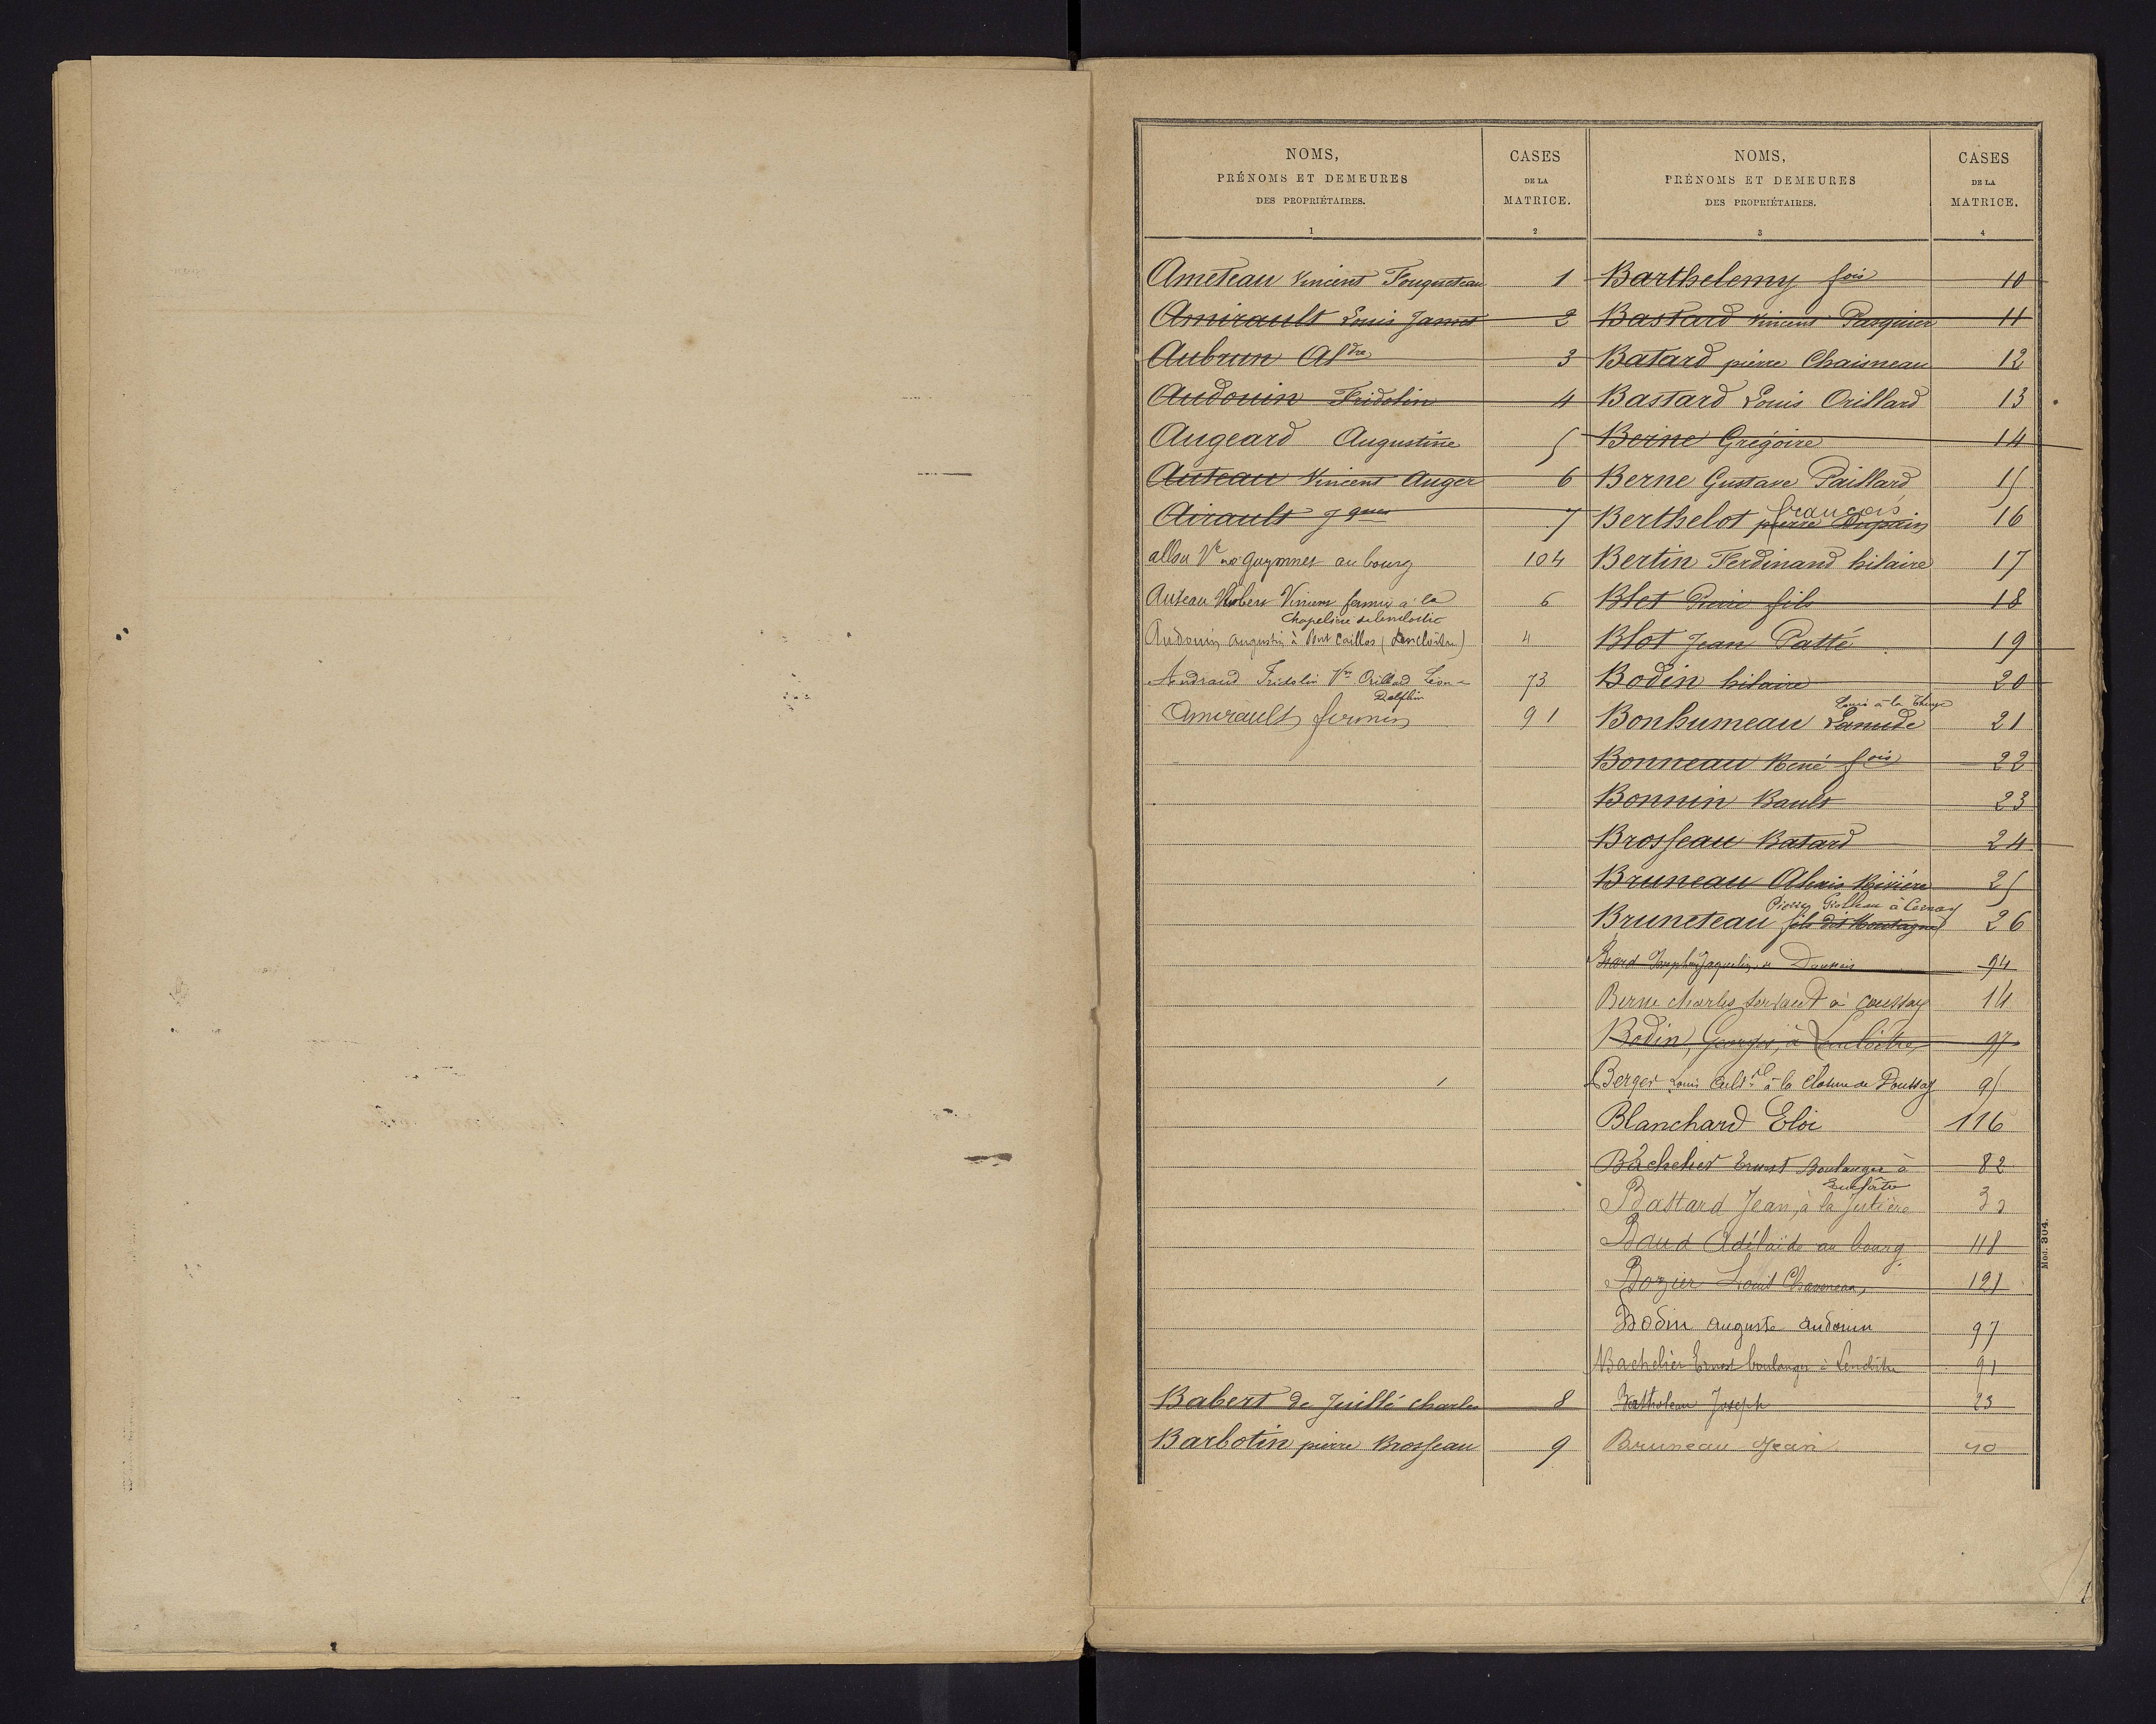 NOMS,
PRÉNOMS ET DEMEURES
DES PROPRIÉTAIRES.
1
CASES
DE LA
MATRICE.
2
Ameteau Vincent Fouqueteau 1
Amirault Louis Jamet 2
Aubrun Aldre 3
Audouin Fridolin 4
Augeard Augustine 5
Auteau Vincent Auger 6
Airault Jques 7
allou Ve née Guyonnet au bourg 104
Auteau Hubert Vincent fermier à la 6
Chapeline de Lencloître
Audouin Augustin à Caillas (Lencloître) 4
Andraud Fridolin Vve Orillard Léon- 73
Delphin
Amirault firmin 91
Babert de Juillé Charles 8
Barbotin pierre Brosseau 9
NOMS,
PRÉNOMS ET DEMEURES
DES PROPRIÉTAIRES.
3
CASES
DE LA
MATRICE.
4
Barthelemy fois 10
Bastard Vincent Pasquier 11
Batard pierre Chaisneau 12
Bastard Louis Orillard 13
Berne Grégoire 14
Berne Gustave Paillard 15
françois
Berthelot pierre Dupain 16
Bertin Ferdinand hilaire 17
Blet Pierre fils 18
Blot Jean Patté 19
Bodin hilaire 20
Louis à la
Bonhumeau 21
Bonneau René fois 22
Bonnin Rault 23
Brosseau Batard 24
Bruneau Alexis Rivière 25
Pierre à Cernay
Bruneteau fils dit Montagne 26
Jaquelin 94
Berne Charles à Coussay 14
Bodin, Georges, à Lencloître, 97
Berger Louis Cultr à la de Doussay 95
Blanchard Eloi 116
Bachelier Ernest Boulanger à 82
Bastard Jean, à la Justière 33
Baud Adélaïde au bourg 118
Bozier Louis Chauveau, 121
Bodin Auguste Audouin 97
Bachelier Ernest boulanger à Lencloître 91
Joseph 23
Bruneau Jean 40
Mod. 304.
1